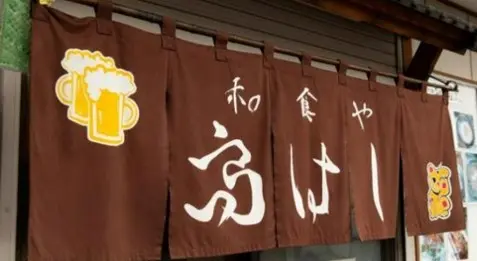 和食や
高はし